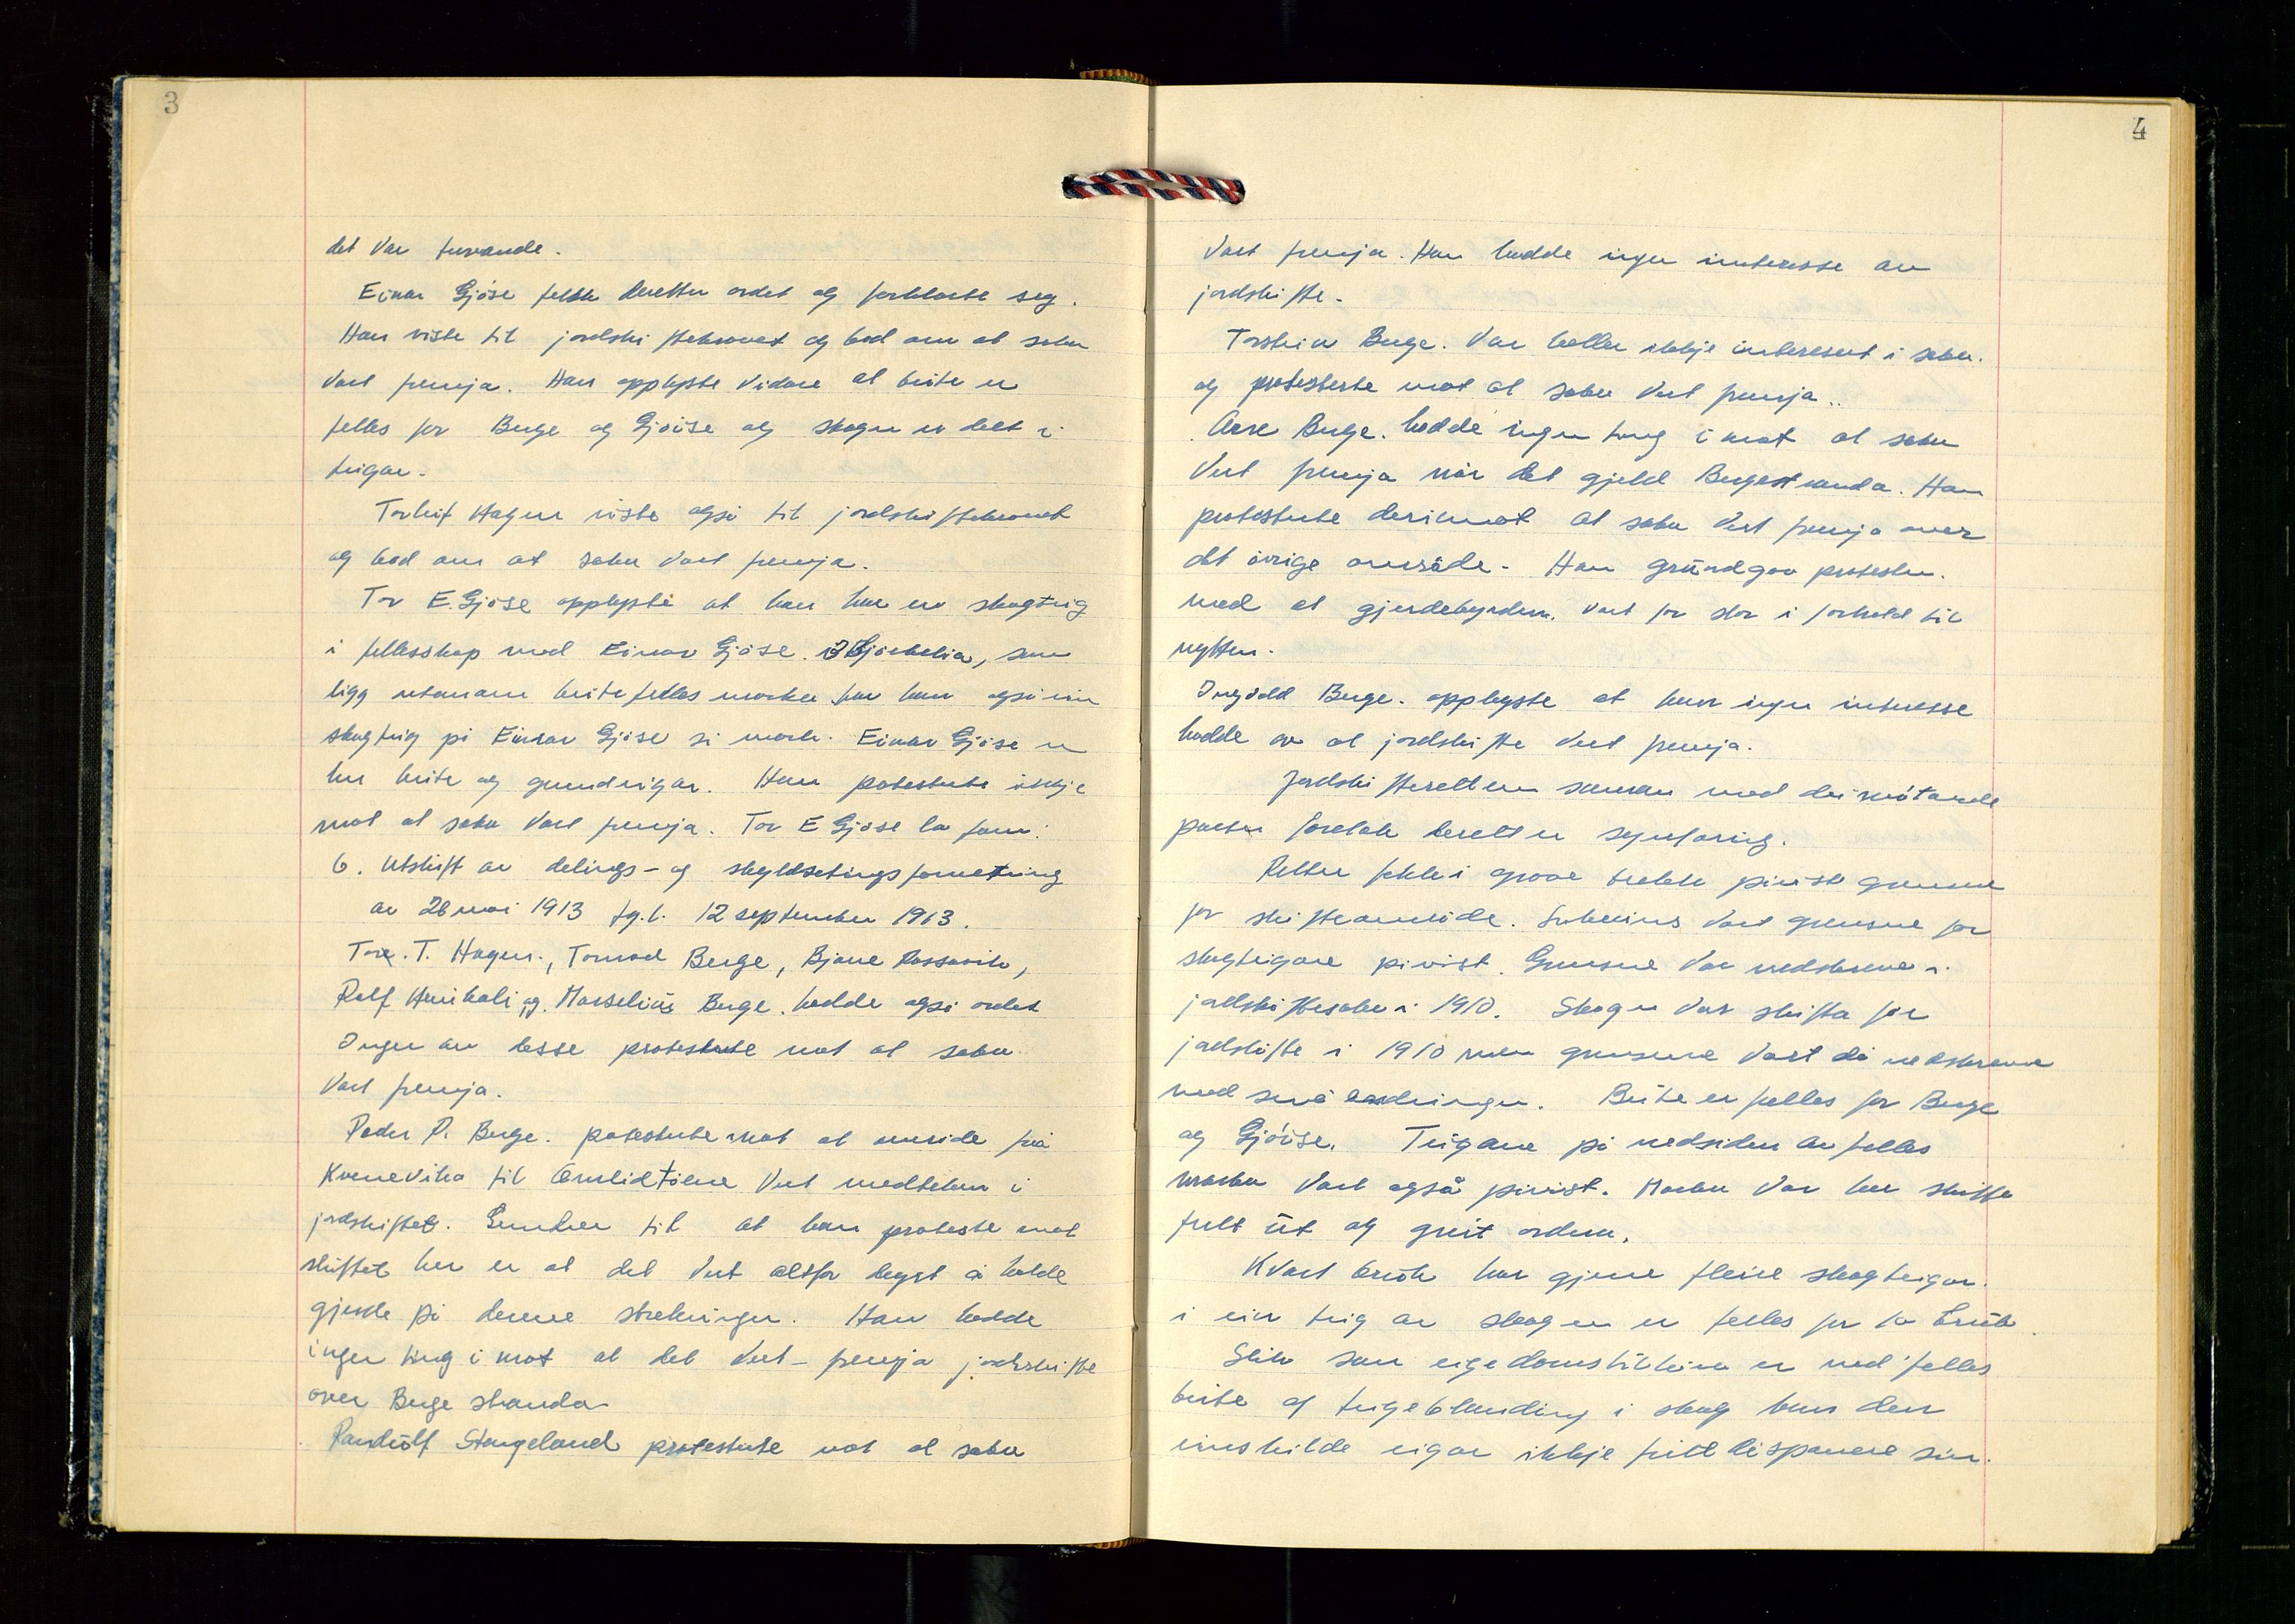 3
det var turvande.
Einar Gjöse fekk deretter ordet og forklarte seg.
Han viste til jordskiftekravet og bad om at saka
vart fremja. Han opplyste vidare at beite er
felles for Berge og Gjöise og skogen er delt i
teigar.
Torleif Hagen viste også til jordskiftekravet
og bad om at saka vart fremja.
Tor E. Gjöse opplyste at han har en skogteig
i fellesskap med Einar Gjöse. I Gjöselia, som
ligg utanom beitefelles marka har han også ein
skogteig på Einar Gjöse si mark. Einar Gjöse er
her beite og grunneigar. Han protesterte ikkje
mot at saka vart fremja. Tor E Gjöse la fram:
6. Utskift av delings- og skyldsetingsforretning
av 28 mai 1913 tg.l. 12 september 1913.
Tore. T. Hagen., Tormod Berge, Bjane Rossavik,
Rolf Heirikali og. Marselius Berge. hadde også ordet
Ingen av desse protesterte mot at saka
vart fremja.
Peder P. Berge. protesterte mot at område frå
Kvernevika til Ørnlidtölene vert medteken i
jordskiftet. Grunnen til at han proteste mot
skiftet her er at det vert altfor dyrt å halde
gjerde på denne strekningen. Han hadde
ingen ting i mot at det vert fremja jordskifte
over Berge stranda
Randulf Stangeland protesterte mot at saka
4
vart fremja. Han hadde ingen interesse av
jordskifte.
Torstein Berge. Var heller ikkje interesert i saka.
og protesterte mot at saka vert fremja..
Arne Berge. hadde ingen ting i mot at saka
vert fremja når det gjeld Bergestranda. Han
protesterte derimot at saka vert fremja over
det övrige område. Han grundgav protesten.
med at gjerdebyrden. vart for stor i forhold til
nytten.
Ingvald Berge. opplyste at han ingen interesse
hadde av at jordskifte vert fremja.
Jordskifteretten saman med dei mötande
parter foretok deretter synfaring.
Retten fekk i grove trekk påvist grensene
for skifteområde. Sukesivs vart grensene for
skogteigane påvist. Grensene var nedskrevne i
jordskiftesaka i 1910. Skogen var skifta för
jordskifte i 1910 men grensene vart då nedskrevne
med små endringer. Beite er felles for Berge
og Gjöise. Teigane på nedsiden av felles
marka vart også påvist. Marka var her skifta
fult ut og greit ordna.
Kvart bruk har gjerne fleire skogteigar.
i ein teig av skogen er felles for to bruk.
Slik som eigedomstilhöva er med felles
beite og teigeblanding i skog kan den
einskilde eigar ikkje fritt disponere sin.